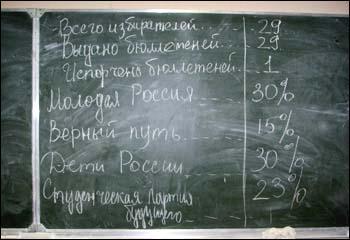 Всего избирателей... 29
Выдано бюллетеней.. 29
Испорчено бюллетеней. 1
Молодая Россия... 30%
Верный путь... 15%
Дети России... 30%
Студенческая партия 23%
будущего